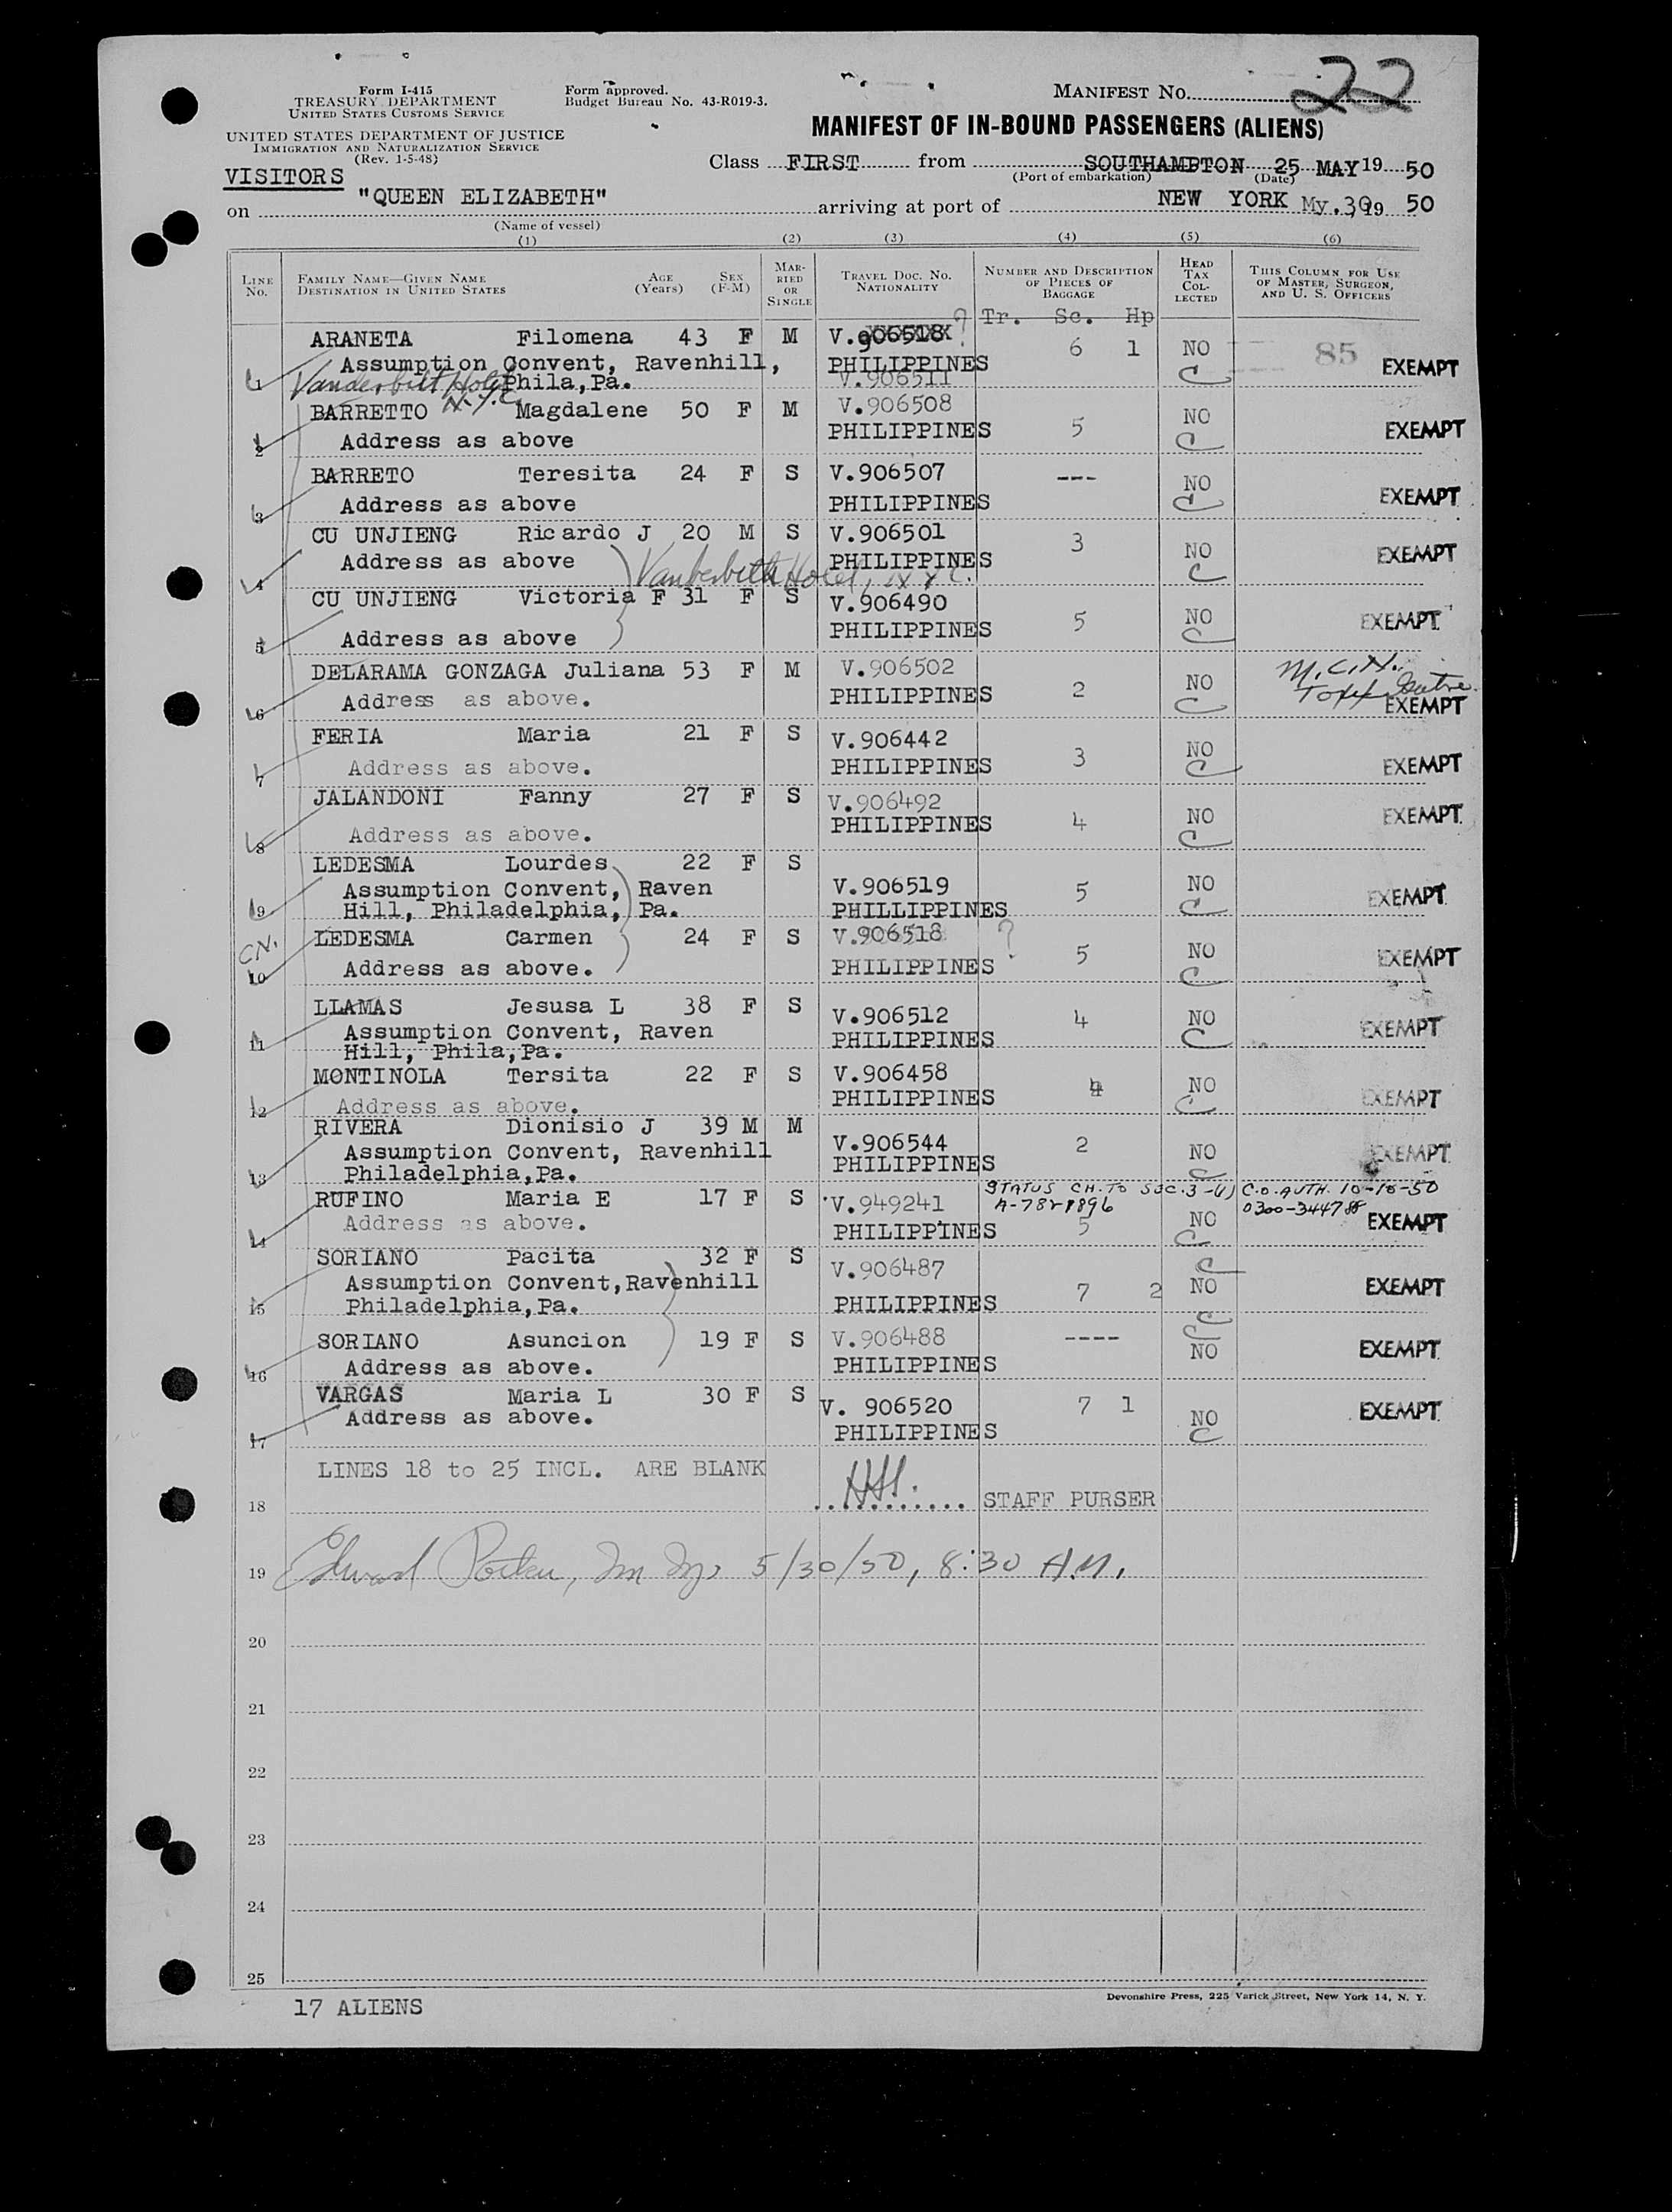 Form I-415
TREASURY DEPARTMENT
UNITED STATES CUSTOMS SERVICE
UNITED STATES DEPARTMENT OF JUSTICE
IMMIGRATION AND NATURALIZATION SERVICE
(Rev. 1-5-48)
Form approved.
Budget Bureau No. 43-R019-3.
MANIFEST NO. 22
MANIFEST OF IN-BOUND PASSENGERS (ALIENS)
Class FIRST from SOUTHAMPTON 25 MAY 19 50
(Port of embarkation) (Date)
VISITORS
on "QUEEN ELIZABETH" arriving at port of NEW YORK My.30 19 50
(Name of vessel)
(1) (2) (3) (4) (5) (6)
LINE NO. FAMILY NAME—GIVEN NAME DESTINATION IN UNITED STATES AGE (Years) SEX (F-M) MARRIED OR SINGLE TRAVEL DOC. NO. NATIONALITY NUMBER AND DESCRIPTION OF PIECES OF BAGGAGE HEAD TAX COLLECTED THIS COLUMN FOR USE OF MASTER, SURGEON, AND U. S. OFFICERS
Tr. Sc. Hp
ARANETA Filomena 43 F M V.906518 ?
Assumption Convent, Ravenhill, PHILIPPINES 6 1 NO 85
1 Vanderbilt Hotel Phila,Pa. V.906511 C EXEMPT
N.Y.C.
BARRETTO Magdalene 50 F M V.906508 NO
2 Address as above PHILIPPINES 5 C EXEMPT
BARRETO Teresita 24 F S V.906507 --- NO
3 Address as above PHILIPPINES C EXEMPT
CU UNJIENG Ricardo J 20 M S V.906501 3
4 Address as above PHILIPPINES NO C EXEMPT
Vanderbilt Hotel, N Y C.
CU UNJIENG Victoria F 31 F S V.906490 NO
5 Address as above PHILIPPINES 5 C EXEMPT
DELARAMA GONZAGA Juliana 53 F M V.906502 NO M.C.N.
6 Address as above. PHILIPPINES 2 C EXEMPT
FERIA Maria 21 F S V.906442 NO
7 Address as above. PHILIPPINES 3 C EXEMPT
JALANDONI Fanny 27 F S V.906492 NO EXEMPT
8 Address as above. PHILIPPINES 4 C
LEDESMA Lourdes 22 F S
Assumption Convent, Raven V.906519 5 NO EXEMPT
9 Hill, Philadelphia, Pa. PHILLIPPINES C
CN. LEDESMA Carmen 24 F S V.906518 ? NO
10 Address as above. PHILIPPINES 5 C EXEMPT
LLAMAS Jesusa L 38 F S V.906512 4 NO
11 Assumption Convent, Raven PHILIPPINES C EXEMPT
Hill, Phila,Pa.
MONTINOLA Tersita 22 F S V.906458 4 NO
12 Address as above. PHILIPPINES C EXEMPT
RIVERA Dionisio J 39 M M
Assumption Convent, Ravenhill V.906544 2 NO EXEMPT
13 Philadelphia,Pa. PHILIPPINES C
STATUS CH. TO SEC. 3-(1) C.O. AUTH. 10-18-50
RUFINO Maria E 17 F S V.949241 0300-344788
14 Address as above. PHILIPPINES 5 NO C EXEMPT
SORIANO Pacita 32 F S V.906487 C
Assumption Convent,Ravenhill 7 2 NO EXEMPT
15 Philadelphia,Pa. PHILIPPINES C
SORIANO Asuncion 19 F S V.906488 ---- C NO EXEMPT
16 Address as above. PHILIPPINES
VARGAS Maria L 30 F S V. 906520 7 1 NO EXEMPT
17 Address as above. PHILIPPINES C
LINES 18 to 25 INCL. ARE BLANK
18 STAFF PURSER
19 Edward 5/30/50, 8:30 A.M.
20
21
22
23
24
25
17 ALIENS
Devonshire Press, 225 Varick Street, New York 14, N. Y.